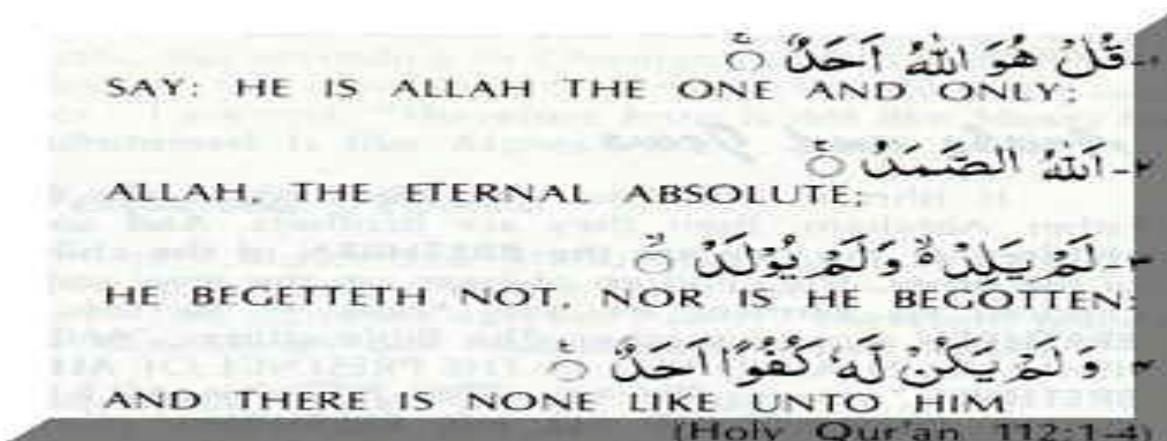 ١- قُلْ هُوَ اللّٰهُ اَحَدٌ ۚ
SAY: HE IS ALLAH THE ONE AND ONLY;
٢- اَللّٰهُ الصَّمَدُ ۚ
ALLAH, THE ETERNAL ABSOLUTE;
٣- لَمْ يَلِدْ ۙ وَلَمْ يُوْلَدْ ۙ
HE BEGETTETH NOT, NOR IS HE BEGOTTEN;
٤- وَلَمْ يَكُنْ لَّهٗ كُفُوًا اَحَدٌ ۚ
AND THERE IS NONE LIKE UNTO HIM
(Holy Qur'an 112:1-4)